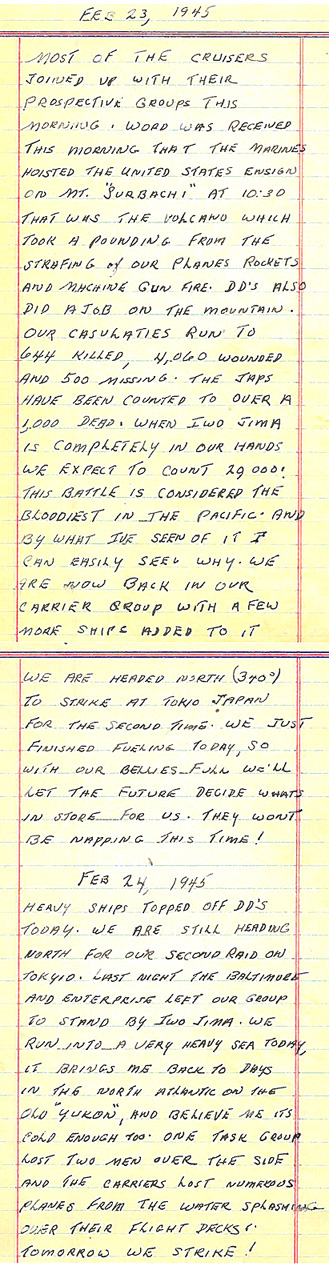 FEB 23, 1945
MOST OF THE CRUISERS
JOINED UP WITH THEIR
PROSPECTIVE GROUPS THIS
MORNING. WORD WAS RECEIVED
THIS MORNING THAT THE MARINES
HOISTED THE UNITED STATES ENSIGN
ON MT. "SURBACHI" AT 10:30
THAT WAS THE VOLCANO WHICH
TOOK A POUNDING FROM THE
STRAFING of OUR PLANES ROCKETS
AND MACHINE GUN FIRE. DD'S ALSO
DID A JOB ON THE MOUNTAIN.
OUR CASULATIES RUN TO
644 KILLED, 4,060 WOUNDED
AND 500 MISSING. THE JAPS
HAVE BEEN COUNTED TO OVER A
1,000 DEAD. WHEN IWO JIMA
IS COMPLETELY IN OUR HANDS
WE EXPECT TO COUNT 20,000!
THIS BATTLE IS CONSIDERED THE
BLOODIEST IN THE PACIFIC. AND
BY WHAT IVE SEEN OF IT I
CAN EASILY SEE WHY. WE
ARE NOW BACK IN OUR
CARRIER GROUP WITH A FEW
MORE SHIPS ADDED TO IT
WE ARE HEADED NORTH (340°)
TO STRIKE AT TOKIO JAPAN
FOR THE SECOND TIME. WE JUST
FINISHED FUELING TODAY, SO
WITH OUR BELLIES FULL WE'LL
LET THE FUTURE DECIDE WHATS
IN STORE FOR US. THEY WONT
BE NAPPING THIS TIME!
FEB 24, 1945
HEAVY SHIPS TOPPED OFF DD'S
TODAY. WE ARE STILL HEADING
NORTH FOR OUR SECOND RAID ON
TOKYIO. LAST NIGHT THE BALTIMORE
AND ENTERPRISE LEFT OUR GROUP
TO STAND BY IWO JIMA. WE
RUN INTO A VERY HEAVY SEA TODAY,
IT BRINGS ME BACK TO DAYS
IN THE NORTH ATLANTIC ON THE
OLD "YUKON", AND BELIEVE ME ITS
COLD ENOUGH TOO. ONE TASK GROUP
LOST TWO MEN OVER THE SIDE
AND THE CARRIERS LOST NUMEROUS
PLANES FROM THE WATER SPLASHING
OVER THEIR FLIGHT DECKS!
TOMORROW WE STRIKE!